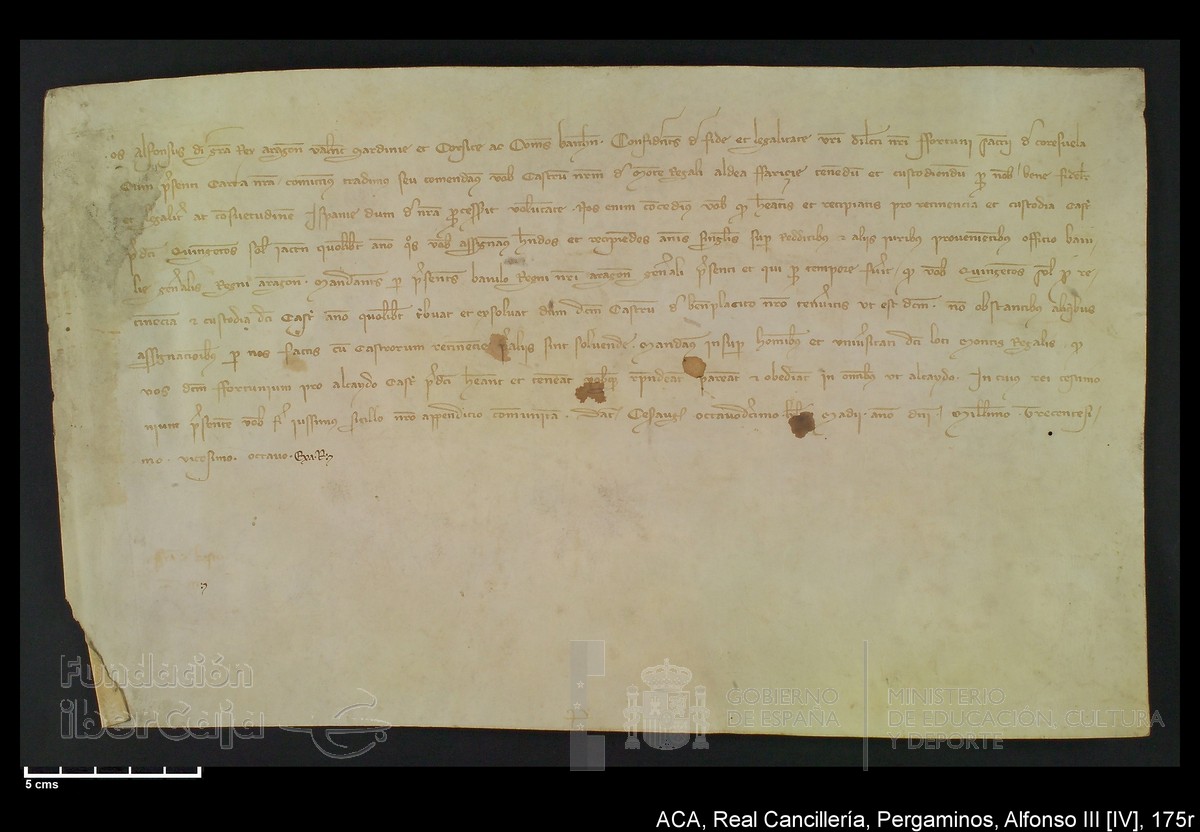 os Alfonsus di gra Rex aragon valent Sardinie et Corsice ac Comes barchn. Confidents d fide et legalitate vri dilci nri ffortuni d
Cum psenti Carta nra comittimus tradimus seu comendam vob Castru nrm d Monte Regali aldea tenendu et custodiendu p nob bene fidelit
et legalit at consuetudine Ispanie dum d nra pcesserit volutate. Nos enim concedim vob q heatis et recipiatis pro retinencia et custodia Castr
pdci Quingetos sol iaccn quolibt ano qos vob assignam hndos et recipiedos annis singlis sup redditibus et aliis iuribus provenientibus officio baiu-
lie gnalis Regni aragon. Mandants p psents baiulo Regni nri aragon gnali psenti et qui p tempore fuit q vob Quingetos sol p re-
tinecia et custodia dci Castr ano quolibt tbuat et exsolvat dum dcm Castrum d bnplacito nro tenuitis ut est dcm. no obstantibus
assignacioibs p nos factis cu Castrorum retinencie sint solvende. Mandam insup hominibs et univsitati dci loci Montis Regalis q
vos dcm ffortunium pro alcaydo Castr pdci heant et teneat rpndeat pareat et obediat in omibus ut alcaydo. In cuius rei testimo
nium psente vob fi iussimus sigillo nro appendicio comunita. Dat Cesaraug octavodecimo kl Madii anno dni Millmo Trecentesi-
mo vicesimo octavo.
5 cms
Fundación
iberCaja
GOBIERNO
DE ESPAÑA
MINISTERIO
DE EDUCACIÓN, CULTURA
Y DEPORTE
ACA, Real Cancillería, Pergaminos, Alfonso III [IV], 175r